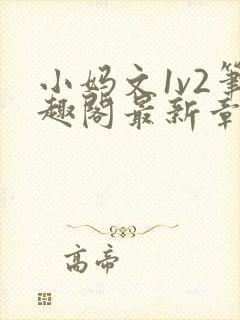 小妈文1v2笔
趣阁最新章
高帝